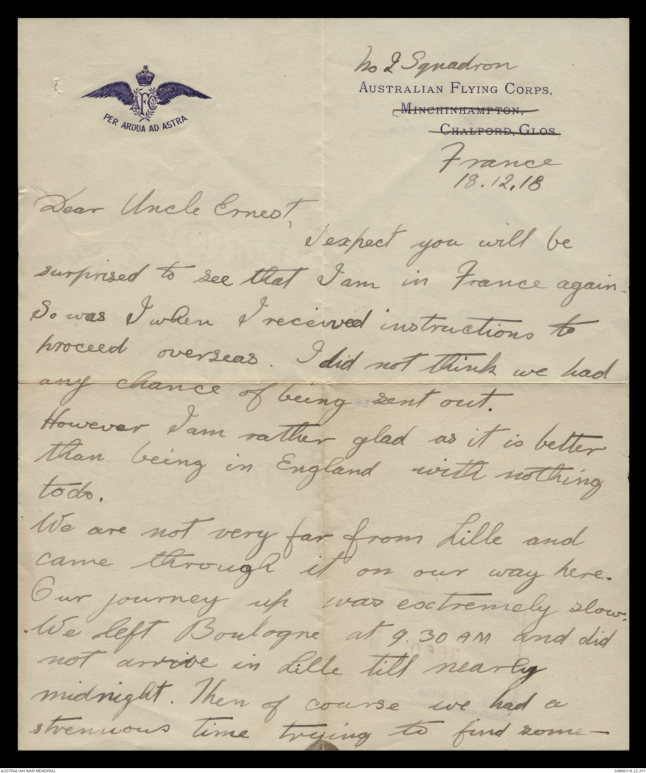 No 2 Squadron
AUSTRALIAN FLYING CORPS,
MINCHINHAMPTON,
CHALFORD, GLOS.
PER ARDUA AD ASTRA
France
18.12.18
Dear Uncle Ernest,
I expect you will be
surprised to see that I am in France again -
So was I when I received instructions to
proceed overseas. I did not think we had
any chance of being sent out.
However I am rather glad as it is better
than being in England with nothing
to do.
We are not very far from Lille and
came through it on our way here.
Our journey up was extremely slow.
We left Boulogne at 9.30 AM and did
not arrive in Lille till nearly
midnight. Then of course we had a
strenuous time trying to find some-
AUSTRALIAN WAR MEMORIAL